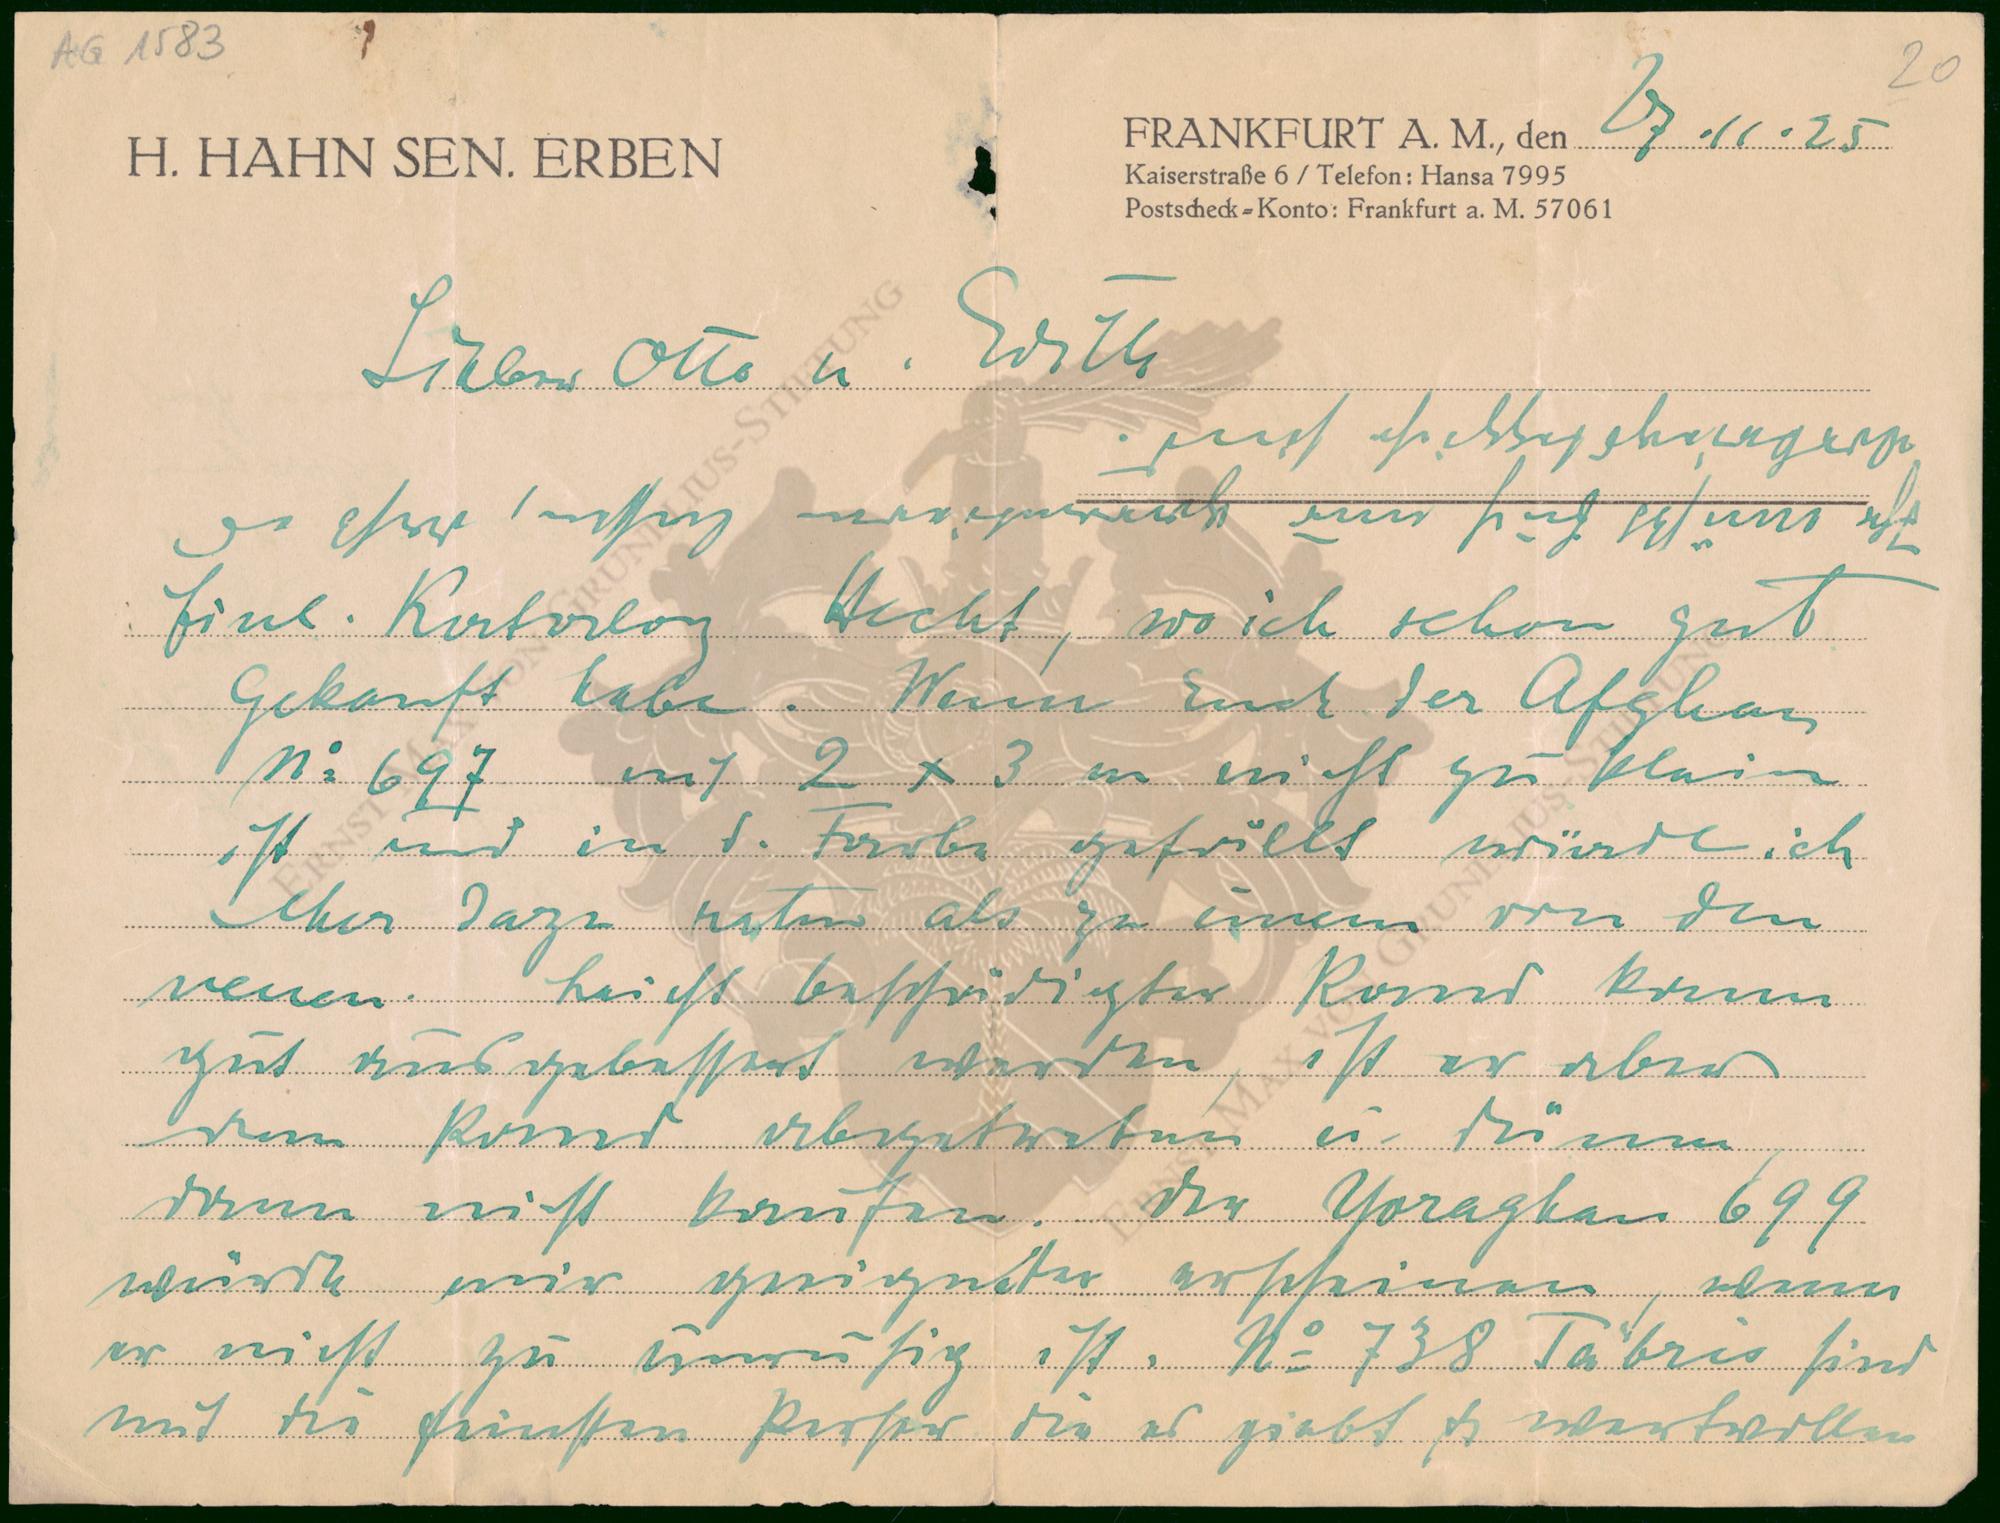 AG 1583
20
H. HAHN SEN. ERBEN
FRANKFURT A. M., den 27.11.25
Kaiserstraße 6 / Telefon: Hansa 7995
Postscheck-Konto: Frankfurt a. M. 57061
Lieber Otto u. Edith
Einl. Katalog Hecht, wo ich schon gut
gekauft habe. Wenn Euch der Afghan
No 697 mit 2 x 3 m nicht zu klein
ist und in d. Farbe gefällt würde ich
eher dazu raten als zu einem von den
neuen. Leicht beschädigter Rand kann
gut ausgebessert werden, ist er aber
am Rand abgetreten u. dünn,
dann nicht kaufen. Der Yoraghan 699
würde mir geeigneter erscheinen, wenn
er nicht zu unruhig ist. No 738 Täbris sind
mit die feinsten Perser die es giebt wertvollen
Ihr müsst Euch nur
da
ERNST MAX VON GRUNELIUS-STIFTUNG
ERNST MAX VON GRUNELIUS-STIFTUNG